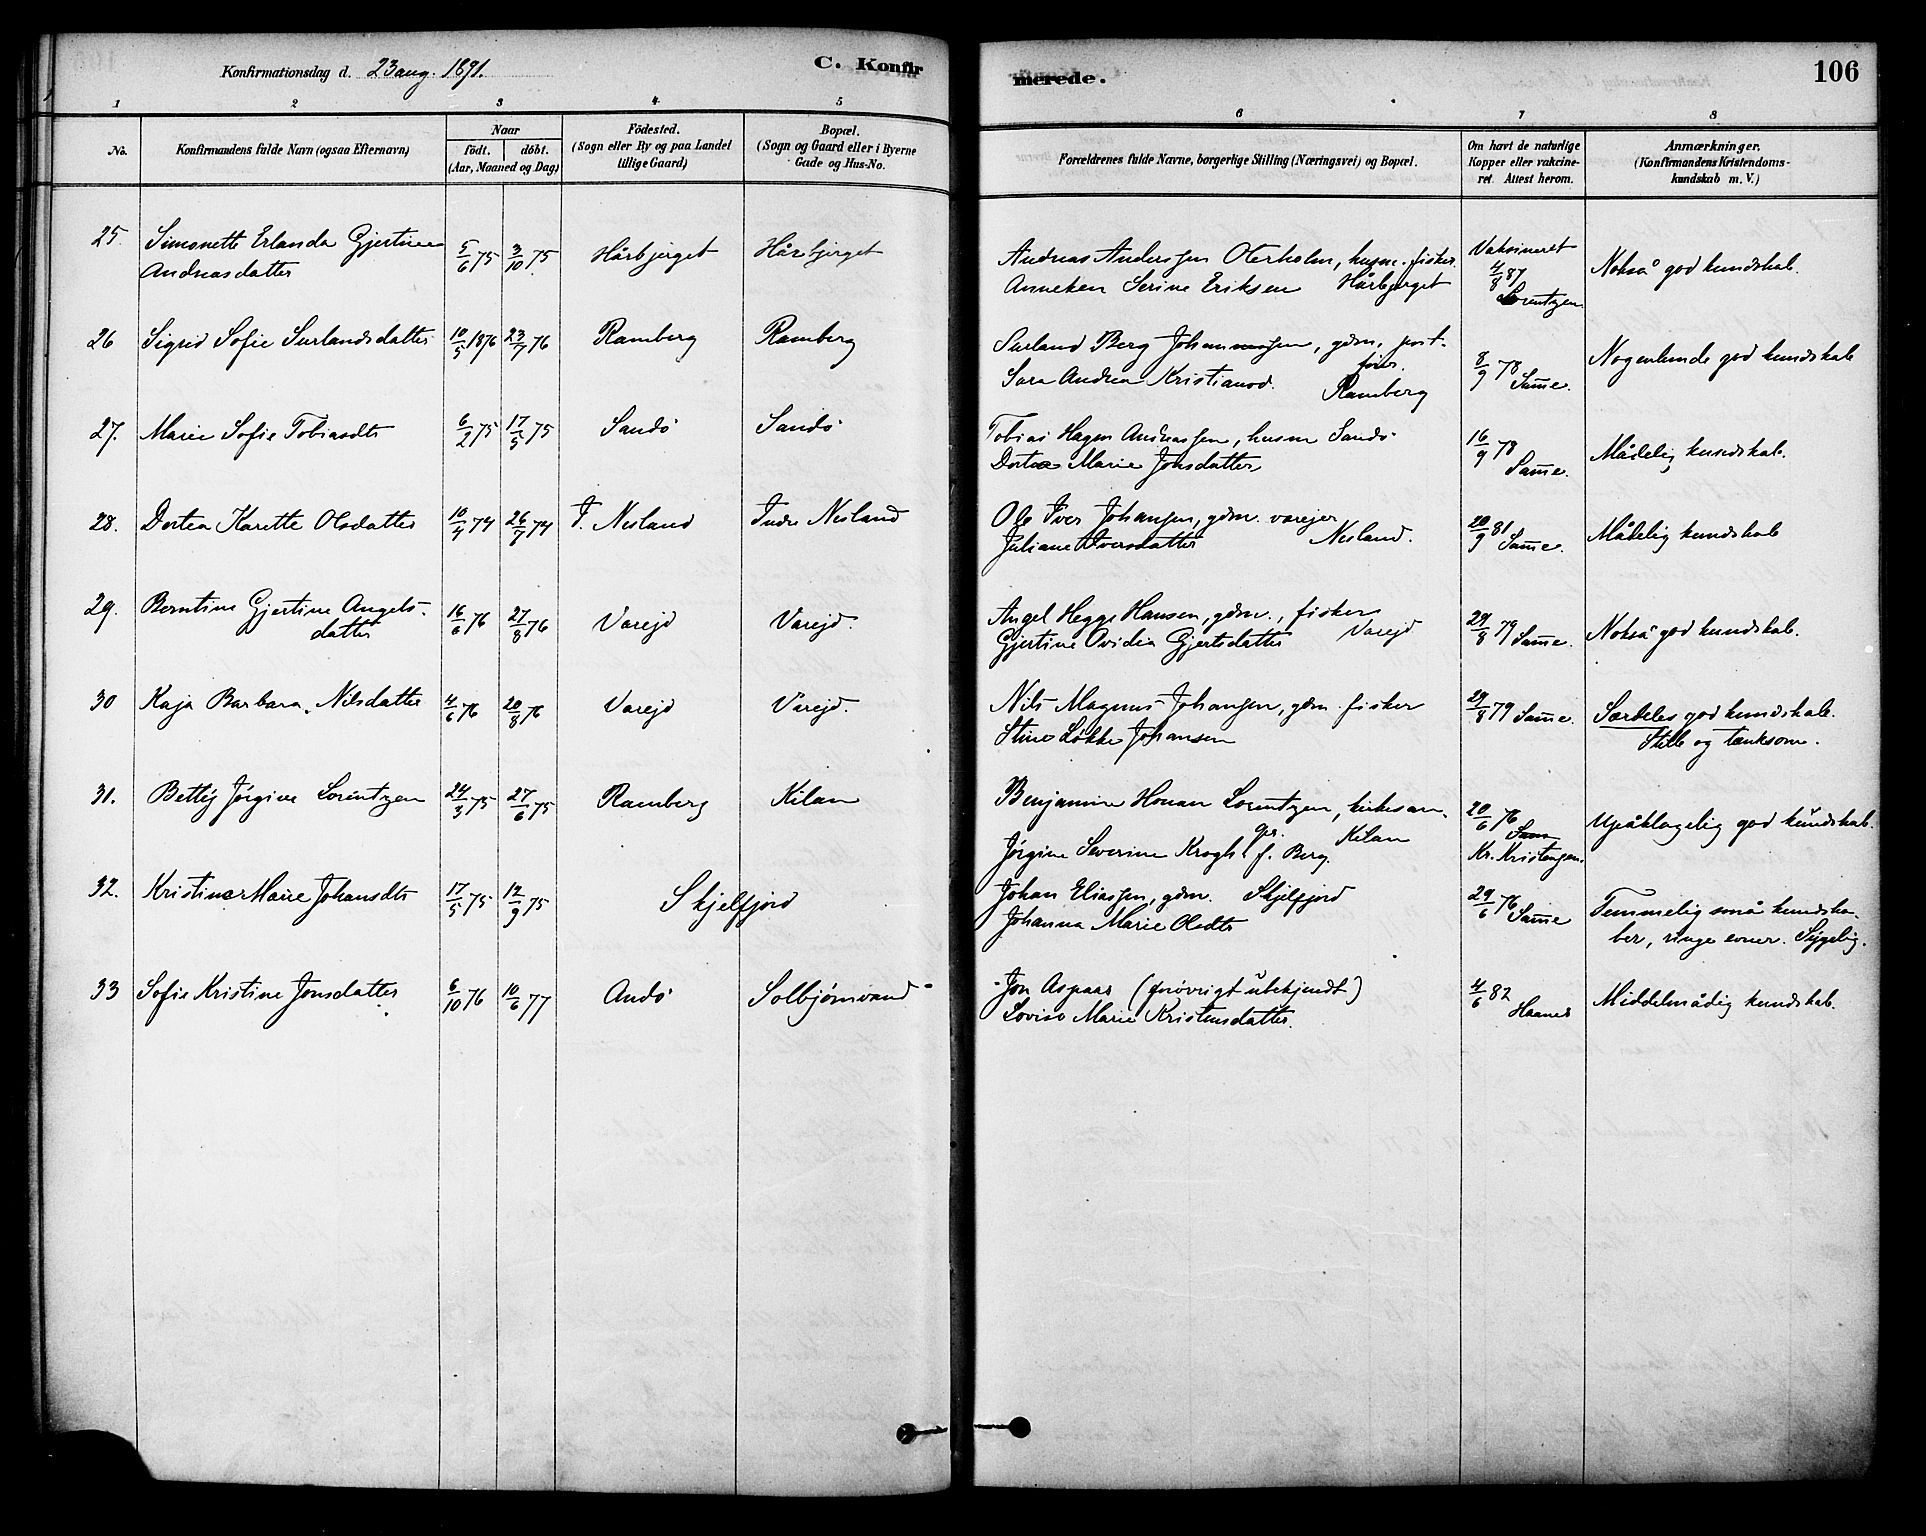 Konfirmationsdag d. 23 aug. 1891.
C. Konfirmerede.
106
1 2 3 4 5 6 7 8
No.
Konfirmandens fulde Navn (ogsaa Efternavn)
Naar
födt. döbt.
(Aar, Maaned og Dag)
Födested.
(Sogn eller By og paa Landet
tillige Gaard)
Bopæl.
(Sogn og Gaard eller i Byerne
Gade og Hus-No.
Forældrenes fulde Navne, borgerlige Stilling (Næringsvei) og Bopæl.
Om havt de naturlige
Kopper eller vakcine-
ret. Attest herom.
Anmærkninger.
(Konfirmandens Kristendoms-
kundskab m. V.)
25. Simonette Erlanda Gjertine
Andreasdatter
5/6 75 3/10 75 Hårbjerget Hårbjerget
Andreas Anderssen Oterholm, husm. fisker
Anneken Serine Eriksen Hårbjerget
Vaksineret
4/8 87
Lorentzen
Nokså god kundskab.
26 Sigrid Sofie Surlandsdatter 10/5 1876 23/7 76 Ramberg Ramberg
Surland Berg Johannessen, gdm. post-
fører.
Sara Andrea Kristiansd. Ramberg
8/9 78 Samme.
Nogenlunde god kundskab
27. Marie Sofie Tobiasdtr 6/2 75 17/5 75 Sandö Sandö
Tobias Hagen Andreassen, husm Sandö
Dortea Marie Jonsdatter
16/9 78
Samme.
Mådelig kundskab.
28. Dortea Karette Olsdatter 10/4 74 26/7 74 I. Nesland Indre Nesland
Ole Iver Johansen, gdm. varejer
Juliane Iversdatter Nesland.
20/9 81 Samme.
Mådelig kundskab
29. Berntine Gjertine Angels-
datter
16/6 76 27/8 76 Varejd Varejd.
Angel Hegge Hansen, gdm., fisker
Gjertine Ovidia Gjertsdatter Varejd
29/8 79 Samme.
Nokså god kundskab.
30 Kaja Barbara Nilsdatter 4/6 76 20/8 76 Varejd Varejd.
Nils Magnus Johansen, gdm. fisker
Stine Løkke Johansen
29/8 79 Samme.
Særdeles god kundskab.
Stille og tænksom.
31. Betty Jørgine Lorentzen 24/3 75 27/6 75 Ramberg Kilan
Benjamin Honan Lorentzen, kirkesan-
ger. Kilan
Jørgine Severine Krogh f. Berg.
20/6 76
Sam
Kr. Kristensen.
Upåklagelig god kundskab.
32. Kristine Marie Johansdtr 17/5 75 12/9 75 Skjelfjord
Johan Eliassen, gdm. Skjelfjord
Johanna Marie Olsdtr
29/6 76 Samme
Temmelig små kundska-
ber, ringe evner. Sygelig.
33 Sofie Kristine Jonsdatter 6/10 76 10/6 77 Andö Solbjørnvand
Jon Aspaas (forøvrigt ubekjendt)
Lovise Marie Kristensdatter.
4/6 82
Haanes
Middelmådig kundskab.